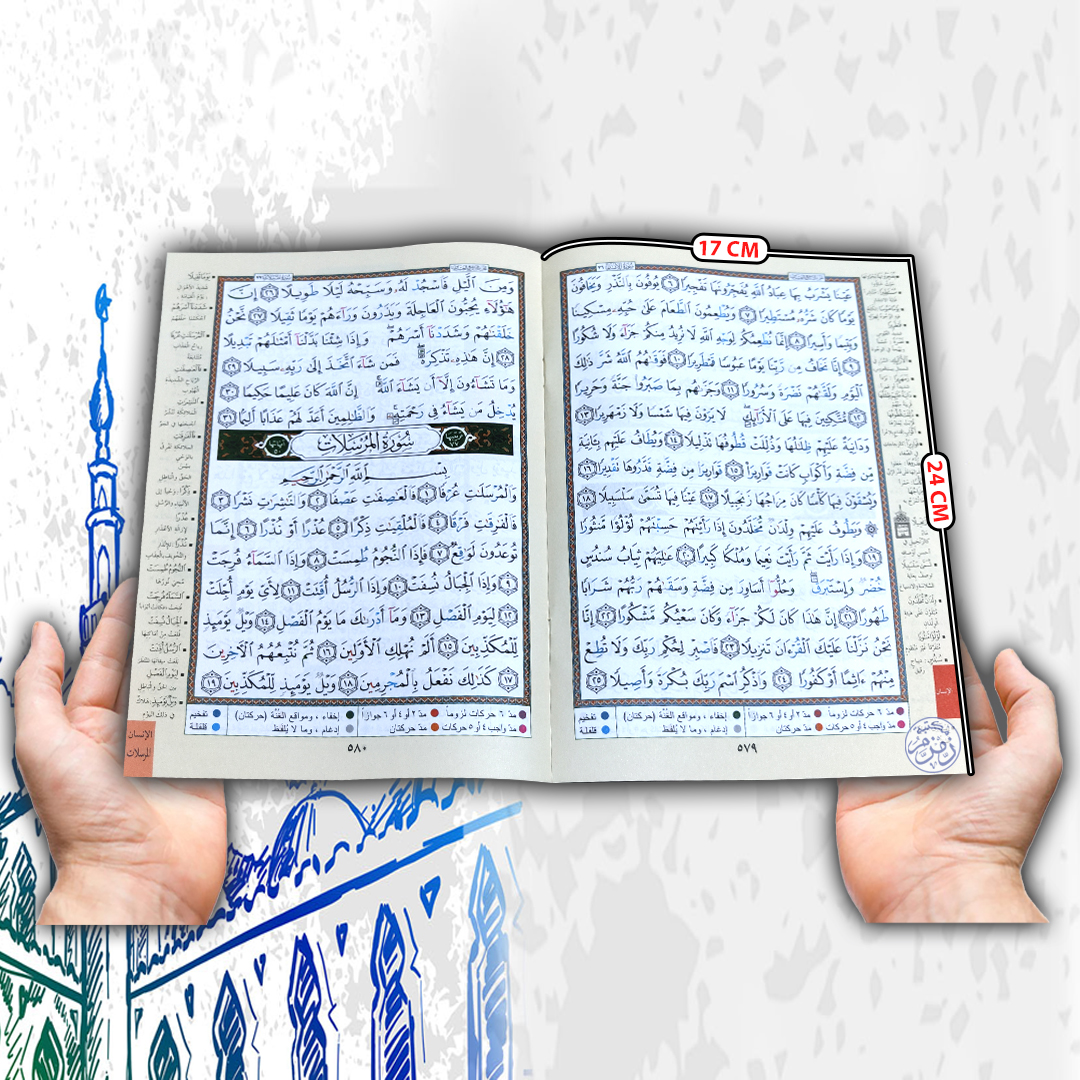 17 CM
24 CM
سورة الإنسان ٧٦
عَيۡنٗا يَشۡرَبُ بِهَا عِبَادُ ٱللَّهِ يُفَجِّرُونَهَا تَفۡجِيرٗا ٦ يُوفُونَ بِٱلنَّذۡرِ وَيَخَافُونَ
يَوۡمٗا كَانَ شَرُّهُۥ مُسۡتَطِيرٗا ٧ وَيُطۡعِمُونَ ٱلطَّعَامَ عَلَىٰ حُبِّهِۦ مِسۡكِينٗا
وَيَتِيمٗا وَأَسِيرًا ٨ إِنَّمَا نُطۡعِمُكُمۡ لِوَجۡهِ ٱللَّهِ لَا نُرِيدُ مِنكُمۡ جَزَآءٗ وَلَا شُكُورًا
٩ إِنَّا نَخَافُ مِن رَّبِّنَا يَوۡمًا عَبُوسٗا قَمۡطَرِيرٗا ١٠ فَوَقَىٰهُمُ ٱللَّهُ شَرَّ ذَٰلِكَ
ٱلۡيَوۡمِ وَلَقَّىٰهُمۡ نَضۡرَةٗ وَسُرُورٗا ١١ وَجَزَىٰهُم بِمَا صَبَرُواْ جَنَّةٗ وَحَرِيرٗا
١٢ مُّتَّكِـِٔينَ فِيهَا عَلَى ٱلۡأَرَآئِكِۖ لَا يَرَوۡنَ فِيهَا شَمۡسٗا وَلَا زَمۡهَرِيرٗا ١٣
وَدَانِيَةً عَلَيۡهِمۡ ظِلَٰلُهَا وَذُلِّلَتۡ قُطُوفُهَا تَذۡلِيلٗا ١٤ وَيُطَافُ عَلَيۡهِم بِـَٔانِيَةٖ
مِّن فِضَّةٖ وَأَكۡوَابٖ كَانَتۡ قَوَارِيرَا۠ ١٥ قَوَارِيرَاْ مِن فِضَّةٖ قَدَّرُوهَا تَقۡدِيرٗا ١٦
وَيُسۡقَوۡنَ فِيهَا كَأۡسٗا كَانَ مِزَاجُهَا زَنجَبِيلًا ١٧ عَيۡنٗا فِيهَا تُسَمَّىٰ سَلۡسَبِيلٗا ١٨
۞ وَيَطُوفُ عَلَيۡهِمۡ وِلۡدَٰنٞ مُّخَلَّدُونَ إِذَا رَأَيۡتَهُمۡ حَسِبۡتَهُمۡ لُؤۡلُؤٗا مَّنثُورٗا
١٩ وَإِذَا رَأَيۡتَ ثَمَّ رَأَيۡتَ نَعِيمٗا وَمُلۡكٗا كَبِيرًا ٢٠ عَٰلِيَهُمۡ ثِيَابُ سُندُسٍ
خُضۡرٞ وَإِسۡتَبۡرَقٞۖ وَحُلُّوٓاْ أَسَاوِرَ مِن فِضَّةٖ وَسَقَىٰهُمۡ رَبُّهُمۡ شَرَابٗا
طَهُورًا ٢١ إِنَّ هَٰذَا كَانَ لَكُمۡ جَزَآءٗ وَكَانَ سَعۡيُكُم مَّشۡكُورًا ٢٢ إِنَّا
نَحۡنُ نَزَّلۡنَا عَلَيۡكَ ٱلۡقُرۡءَانَ تَنزِيلٗا ٢٣ فَٱصۡبِرۡ لِحُكۡمِ رَبِّكَ وَلَا تُطِعۡ
مِنۡهُمۡ ءَاثِمًا أَوۡ كَفُورٗا ٢٤ وَٱذۡكُرِ ٱسۡمَ رَبِّكَ بُكۡرَةٗ وَأَصِيلٗا ٢٥
مدّ ٦ حركات لزوماً مدّ ٢ أو ٤ أو ٦ جوازاً إخفاء ، ومواقع الغُنَّة (حركتان) تفخيم
مدّ واجب ٤ أو ٥ حركات مدّ حركتان إدغام ، وما لا يُلفَظ قلقلة
٥٧٩
الإنسان
مكتبة زمزم
وَمِنَ ٱلَّيۡلِ فَٱسۡجُدۡ لَهُۥ وَسَبِّحۡهُ لَيۡلٗا طَوِيلًا ٢٦ إِنَّ
هَٰٓؤُلَآءِ يُحِبُّونَ ٱلۡعَاجِلَةَ وَيَذَرُونَ وَرَآءَهُمۡ يَوۡمٗا ثَقِيلٗا ٢٧ نَّحۡنُ
خَلَقۡنَٰهُمۡ وَشَدَدۡنَآ أَسۡرَهُمۡۖ وَإِذَا شِئۡنَا بَدَّلۡنَآ أَمۡثَٰلَهُمۡ تَبۡدِيلًا
٢٨ إِنَّ هَٰذِهِۦ تَذۡكِرَةٞۖ فَمَن شَآءَ ٱتَّخَذَ إِلَىٰ رَبِّهِۦ سَبِيلٗا ٢٩
وَمَا تَشَآءُونَ إِلَّآ أَن يَشَآءَ ٱللَّهُۚ إِنَّ ٱللَّهَ كَانَ عَلِيمًا حَكِيمٗا ٣٠
يُدۡخِلُ مَن يَشَآءُ فِي رَحۡمَتِهِۦۚ وَٱلظَّٰلِمِينَ أَعَدَّ لَهُمۡ عَذَابًا أَلِيمَۢا ٣١
سُورَةُ المُرْسَلَات
بِسۡمِ ٱللَّهِ ٱلرَّحۡمَٰنِ ٱلرَّحِيمِ
وَٱلۡمُرۡسَلَٰتِ عُرۡفٗا ١ فَٱلۡعَٰصِفَٰتِ عَصۡفٗا ٢ وَٱلنَّٰشِرَٰتِ نَشۡرٗا ٣
فَٱلۡفَٰرِقَٰتِ فَرۡقٗا ٤ فَٱلۡمُلۡقِيَٰتِ ذِكۡرًا ٥ عُذۡرًا أَوۡ نُذۡرًا ٦ إِنَّمَا
تُوعَدُونَ لَوَٰقِعٞ ٧ فَإِذَا ٱلنُّجُومُ طُمِسَتۡ ٨ وَإِذَا ٱلسَّمَآءُ فُرِجَتۡ
٩ وَإِذَا ٱلۡجِبَالُ نُسِفَتۡ ١٠ وَإِذَا ٱلرُّسُلُ أُقِّتَتۡ ١١ لِأَيِّ يَوۡمٍ أُجِّلَتۡ
١٢ لِيَوۡمِ ٱلۡفَصۡلِ ١٣ وَمَآ أَدۡرَىٰكَ مَا يَوۡمُ ٱلۡفَصۡلِ ١٤ وَيۡلٞ يَوۡمَئِذٖ
لِّلۡمُكَذِّبِينَ ١٥ أَلَمۡ نُهۡلِكِ ٱلۡأَوَّلِينَ ١٦ ثُمَّ نُتۡبِعُهُمُ ٱلۡأٓخِرِينَ
١٧ كَذَٰلِكَ نَفۡعَلُ بِٱلۡمُجۡرِمِينَ ١٨ وَيۡلٞ يَوۡمَئِذٖ لِّلۡمُكَذِّبِينَ ١٩
مدّ ٦ حركات لزوماً مدّ ٢ أو ٤ أو ٦ جوازاً إخفاء ، ومواقع الغُنَّة (حركتان) تفخيم
مدّ واجب ٤ أو ٥ حركات مدّ حركتان إدغام ، وما لا يُلفَظ قلقلة
٥٨٠
الإنسان
المرسلات